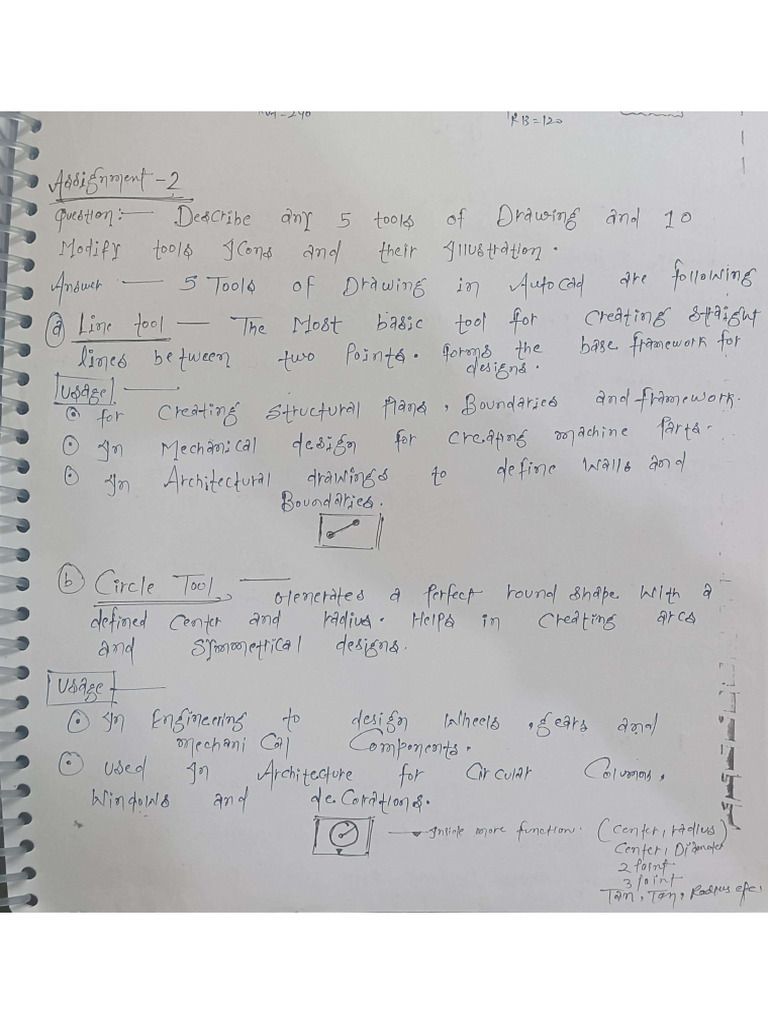 RB=120
Assignment-2
Question:- Describe any 5 tools of Drawing and 10
Modify tools Icons and their Illustration.
Answer - 5 Tools of Drawing in AutoCad are following
(a) Line tool - The Most basic tool for creating straight
lines between two Points. forms the base framework for
designs.
Usage -
for Creating Structural Plans, Boundaries and framework.
In Mechanical design for creating machine Parts.
In Architectural drawings to define Walls and
Boundaries.
(b) Circle Tool - Generates a Perfect round shape with a
defined Center and radius. Helps in Creating arcs
and Symmetrical designs.
Usage -
In Engineering to design Wheels, gears and
mechanical Components.
Used In Architecture for Circular Columns,
Windows and decorations.
Inside more function. (Center, radius)
Center, Diameter
2 Point
3 Point
Tan, Tan, Radius etc.